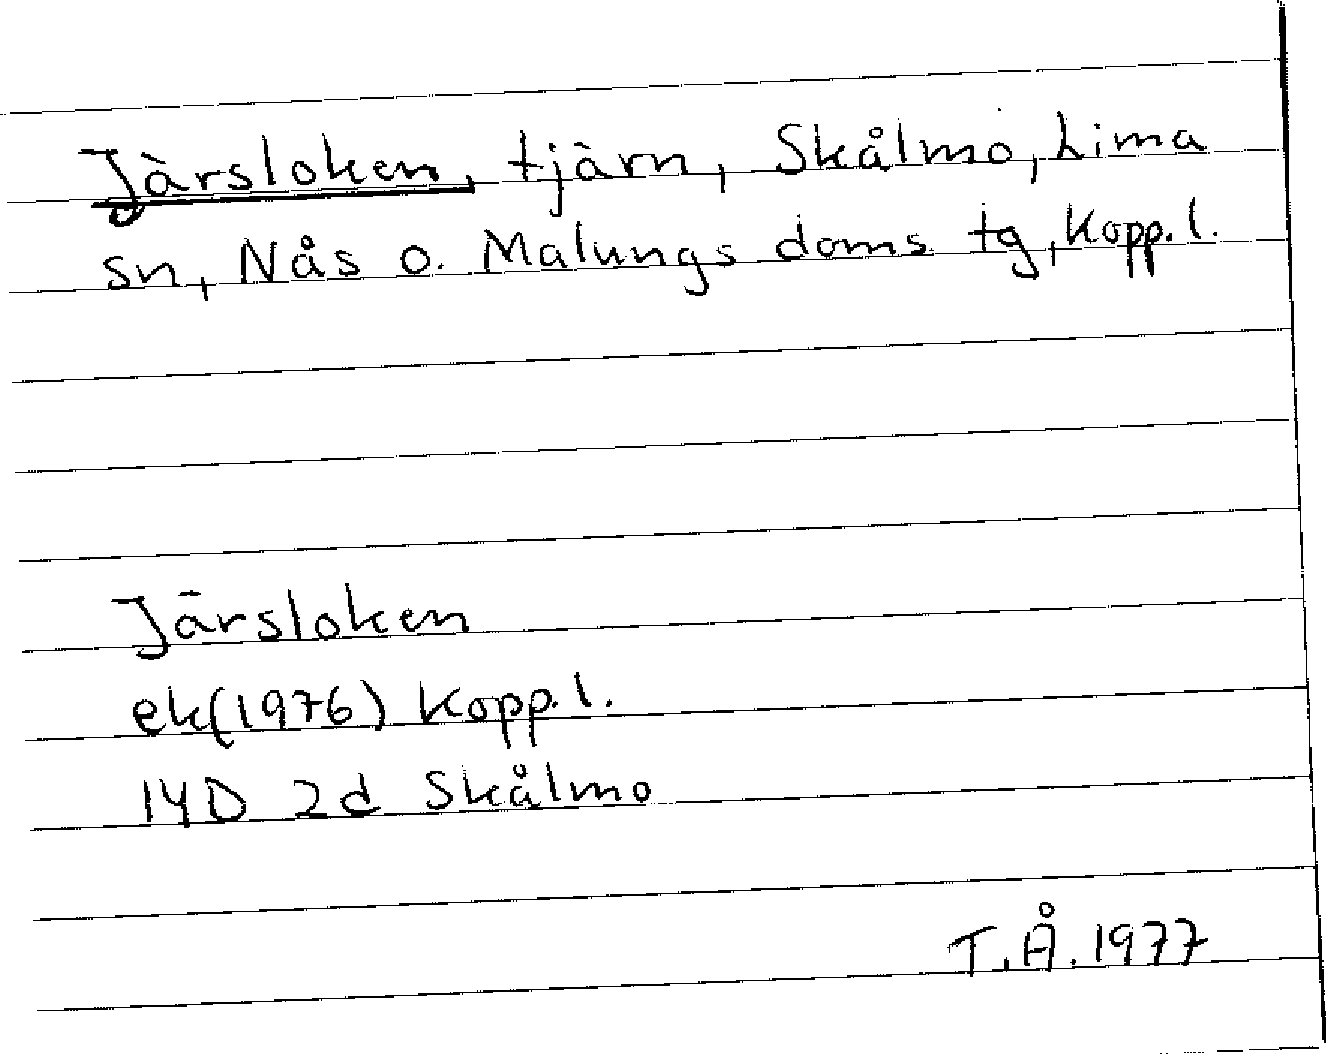 Järsloken, tjärn, Skålmo, Lima
sn, Nås o. Malungs doms. tg, Kopp. l.
Järsloken
ek(1976) Kopp. l.
14D 2d Skålmo
T.Å. 1977